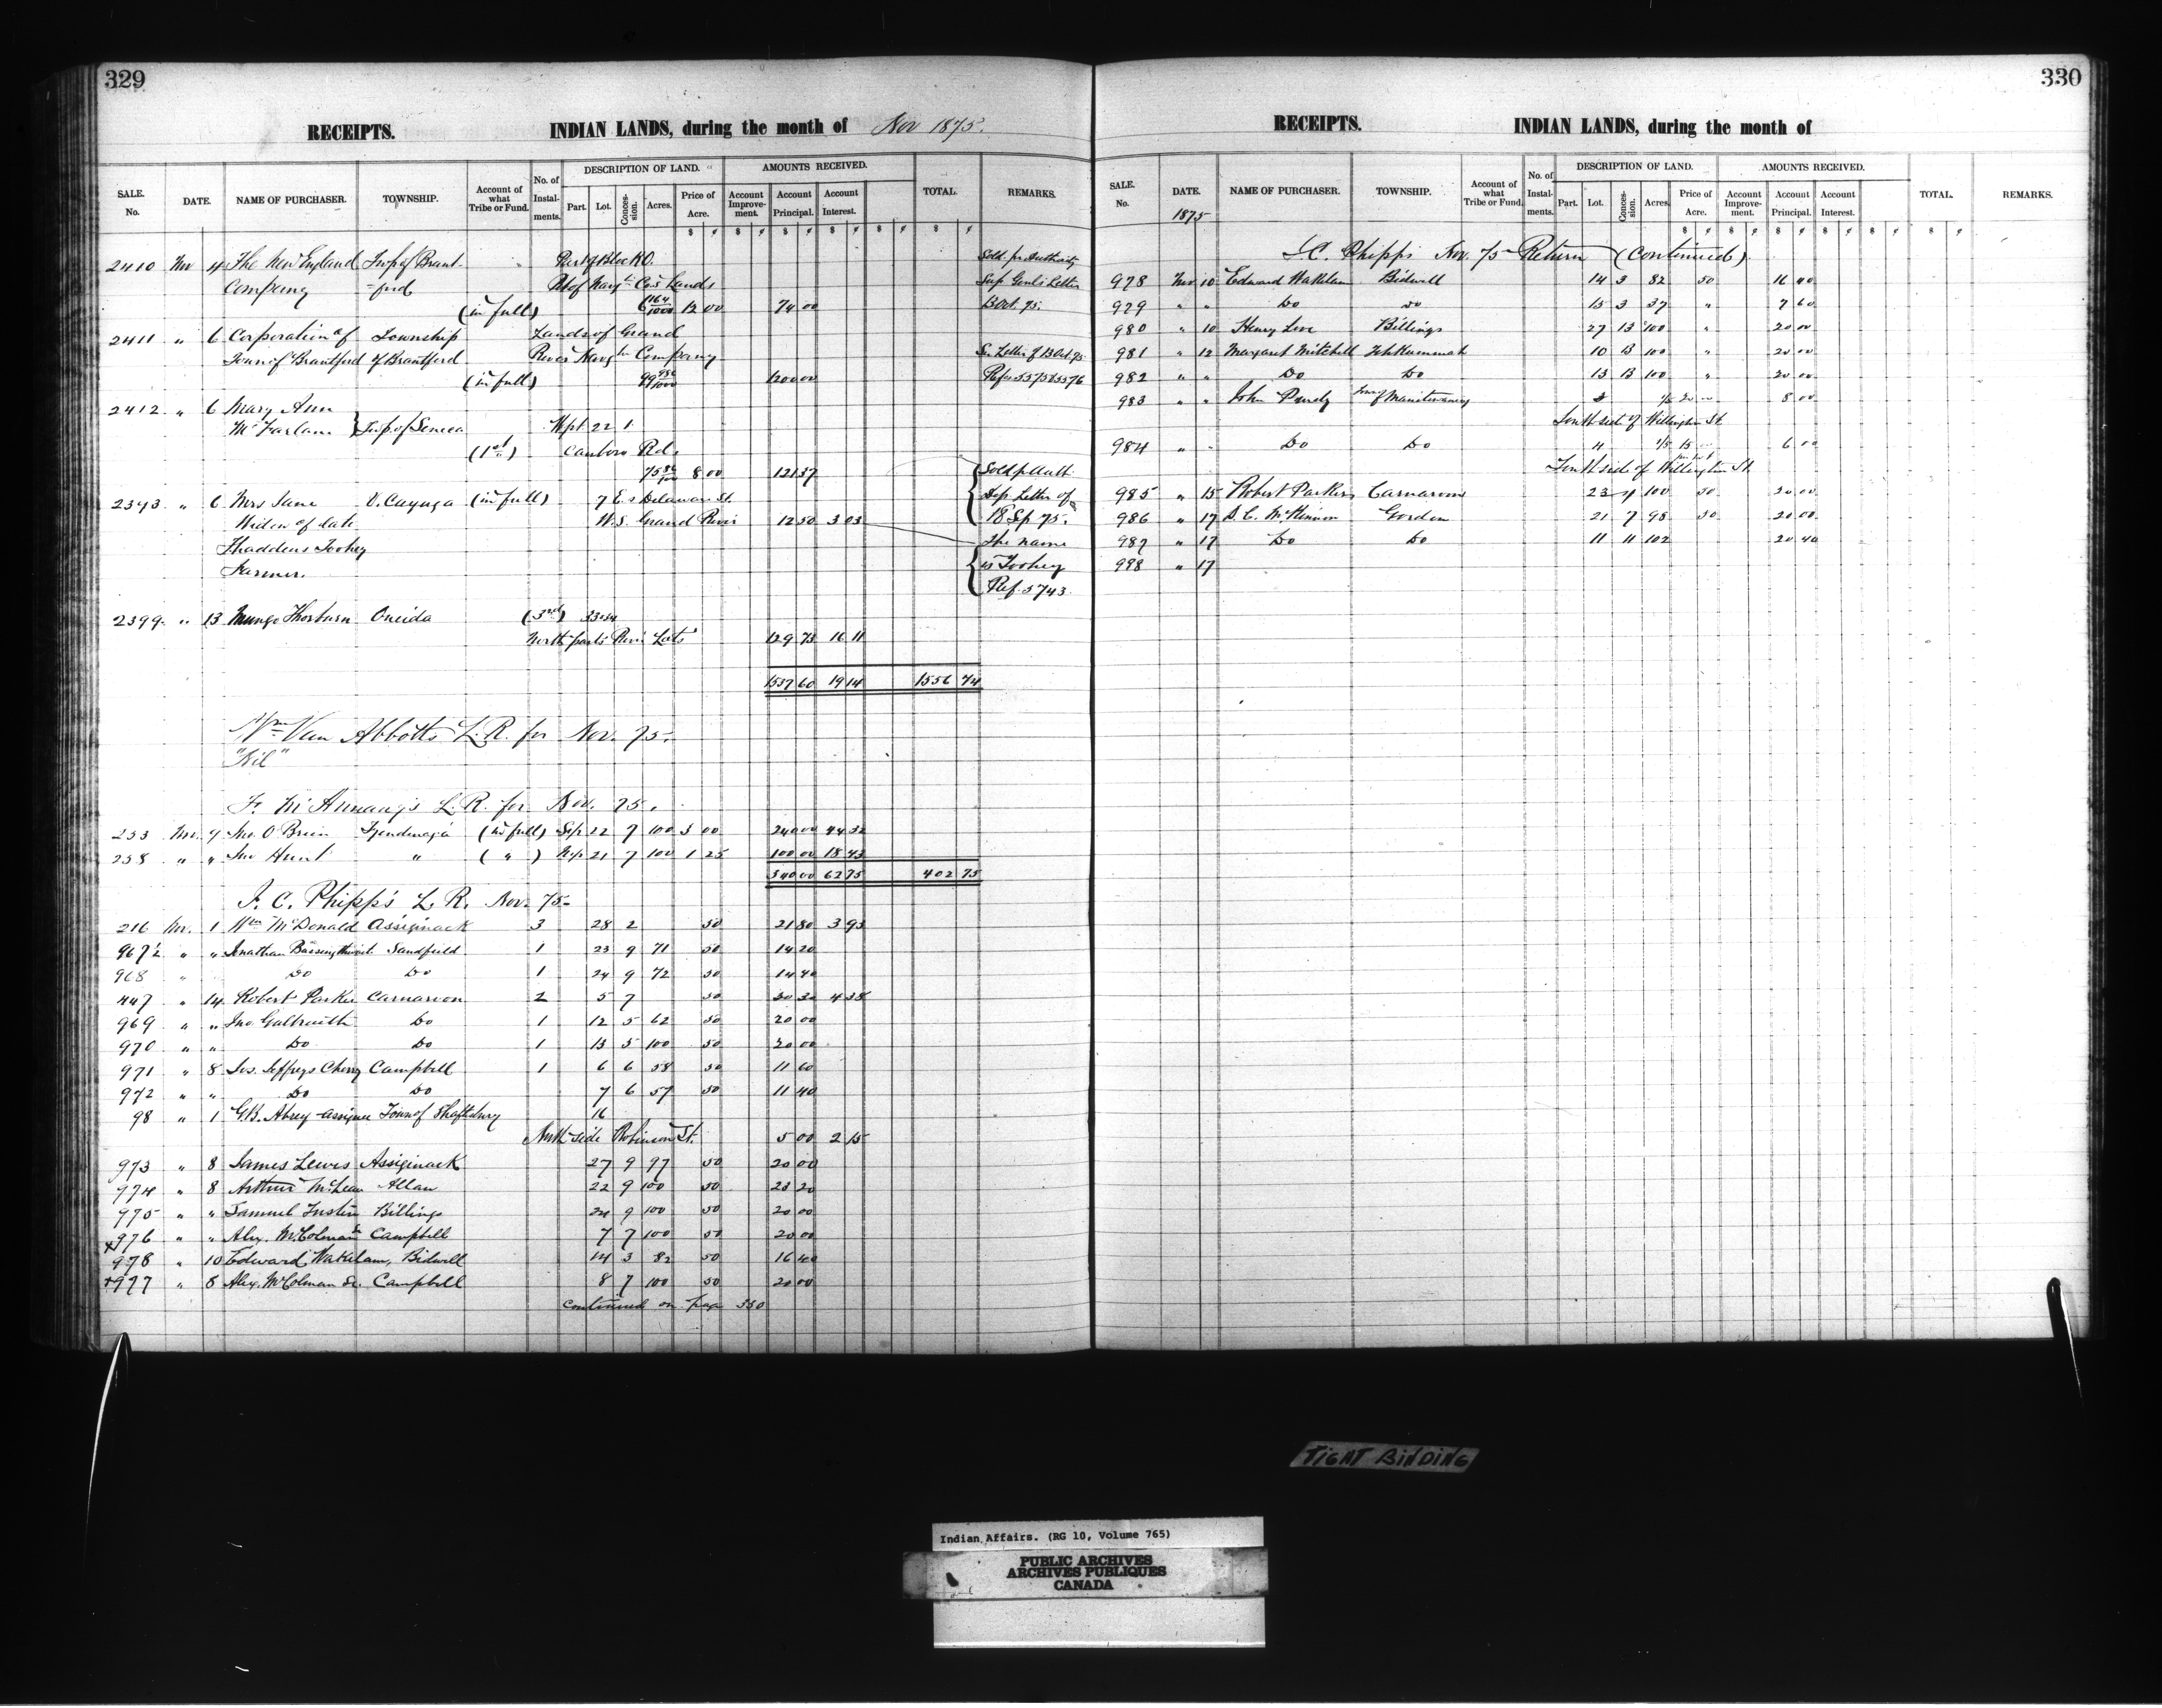 329
RECEIPTS. INDIAN LANDS, during the month of Nov 1875.
SALE. No. DATE. NAME OF PURCHASER. TOWNSHIP. Account of what Tribe or Fund. No. of Instal-ments. DESCRIPTION OF LAND. Part. Lot. Conces-sion. Acres. Price of Acre. AMOUNTS RECEIVED. Account Improve-ment. Account Principal. Account Interest. TOTAL. REMARKS.
$ ¢ $ ¢ $ ¢ $ ¢ $ ¢ $ ¢
2410 Nov 4 The New England Twp of Brant- Part of Block O. Sold pr Authority
Company =ford Pt of Navgtn Co's Lands Sup Genl's Letter
(in full) 6 164/1000 12 00 74 00 13 Oct. 75.
2411 " 6 Corporation of Township Lands of Grand
Town of Brantford of Brantford River Navgtn Company See Letter of 13 Oct 75
(in full) 99 1200 00
2412 " 6 Mary Ann
McFarlane } Twp. of Seneca Wpt 22 1
(1st) Canboro Rd.
75 8 00 121 37 Sold p Auth
2343 " 6 Mrs Jane N. Cayuga (in full) 7 E. s Delaware St. Dep. Letter of
Widow of late W.S. Grand River 12 50 3 03 18 Sp 75.
Thaddeus Toohey the name
Farmer. is Toohey
Ref. 5743
2399 " 13 Mungo Thorburn Oneida (3rd) 33 & 34
North parts River Lots 129 73 16 11
1537 60 19 14 1556 74
Wm Van Abbotts L. R. for Nov. 75.
"Nil"
F. McAnnany's L. R. for Nov. 75.
253 Nov. 4 Jno. O'Brien Tyendinaga (in full) 22 7 100 3 00 240 00 44 32
258 " " Jno Hunt " ( " ) 21 7 100 1 25 100 00 18 43
340 00 62 75 402 75
J. C. Phipps's L. R. Nov. 75-
216 Nov. 1 Wm McDonald Assiginack 3 28 2 50 21 80 3 93
967½ " " Jonathan Bassingthwait Sandfield 1 23 9 71 50 14 20
968 " Do Do 1 24 9 72 50 14 40
447 " 14 Robert Parker Carnarvon 2 5 7 50 30 32 4 38
969 " " Jno. Galbraith Do 1 12 5 62 50 20 00
970 " " Do Do 1 13 5 100 50 20 00
971 " 8 Jos. Jeffreys Cherry Campbell 1 6 6 58 50 11 60
972 " " Do Do 7 6 57 50 11 40
98 " 1 G.B. Abrey assignee Town of Shaftsbury 16
North side Robinson St. 5 00 2 15
973 " 8 James Lewis Assiginack 27 9 97 50 20 00
974 " 8 Arthur McLean Allan 22 9 100 50 23 20
975 " " Samuel Justin Billings 24 9 100 50 20 00
x976 " " Alex. McColman Sr Campbell 7 7 100 50 20 00
978 " 10 Edward Wakelam, Bidwell 14 3 82 50 16 40
x977 " 8 Alex. McColman Sr. Campbell 8 7 100 50 20 00
continued on page 330
330
RECEIPTS. INDIAN LANDS, during the month of
SALE. No. DATE. NAME OF PURCHASER. TOWNSHIP. Account of what Tribe or Fund. No. of Instal-ments. DESCRIPTION OF LAND. Part. Lot. Conces-sion. Acres. Price of Acre. AMOUNTS RECEIVED. Account Improve-ment. Account Principal. Account Interest. TOTAL. REMARKS.
1875
$ ¢ $ ¢ $ ¢ $ ¢ $ ¢ $ ¢
J.C. Phipps Nov. 75 Return (continued)
978 Nov 10 Edward Wakelam Bidwell 14 3 82 50 16 40
979 " " Do Do 15 3 37 " 7 60
980 " 10 Henry Love Billings 27 13 100 " 20 00
981 " 12 Margaret Mitchell Tehkummah 10 B 100 " 20 00
982 " " Do Do 13 B 100 " 20 00
983 " " John Purdy Town of Manitowaning 1/5 20 00 8 00
South side of Wellington St
984 " " Do Do 11 1/5 15 6 00
South side of Wellington St.
985 " 15 Robert Parker Carnarvon 23 4 100 50 20 00
986 " 17 D. C. McKinnon Gordon 21 7 98 50 20 00
987 " 17 Do Do 11 11 102 20 40
998 " 17
TIGHT BINDING
Indian Affairs. (RG 10, Volume 765)
PUBLIC ARCHIVES
ARCHIVES PUBLIQUES
CANADA